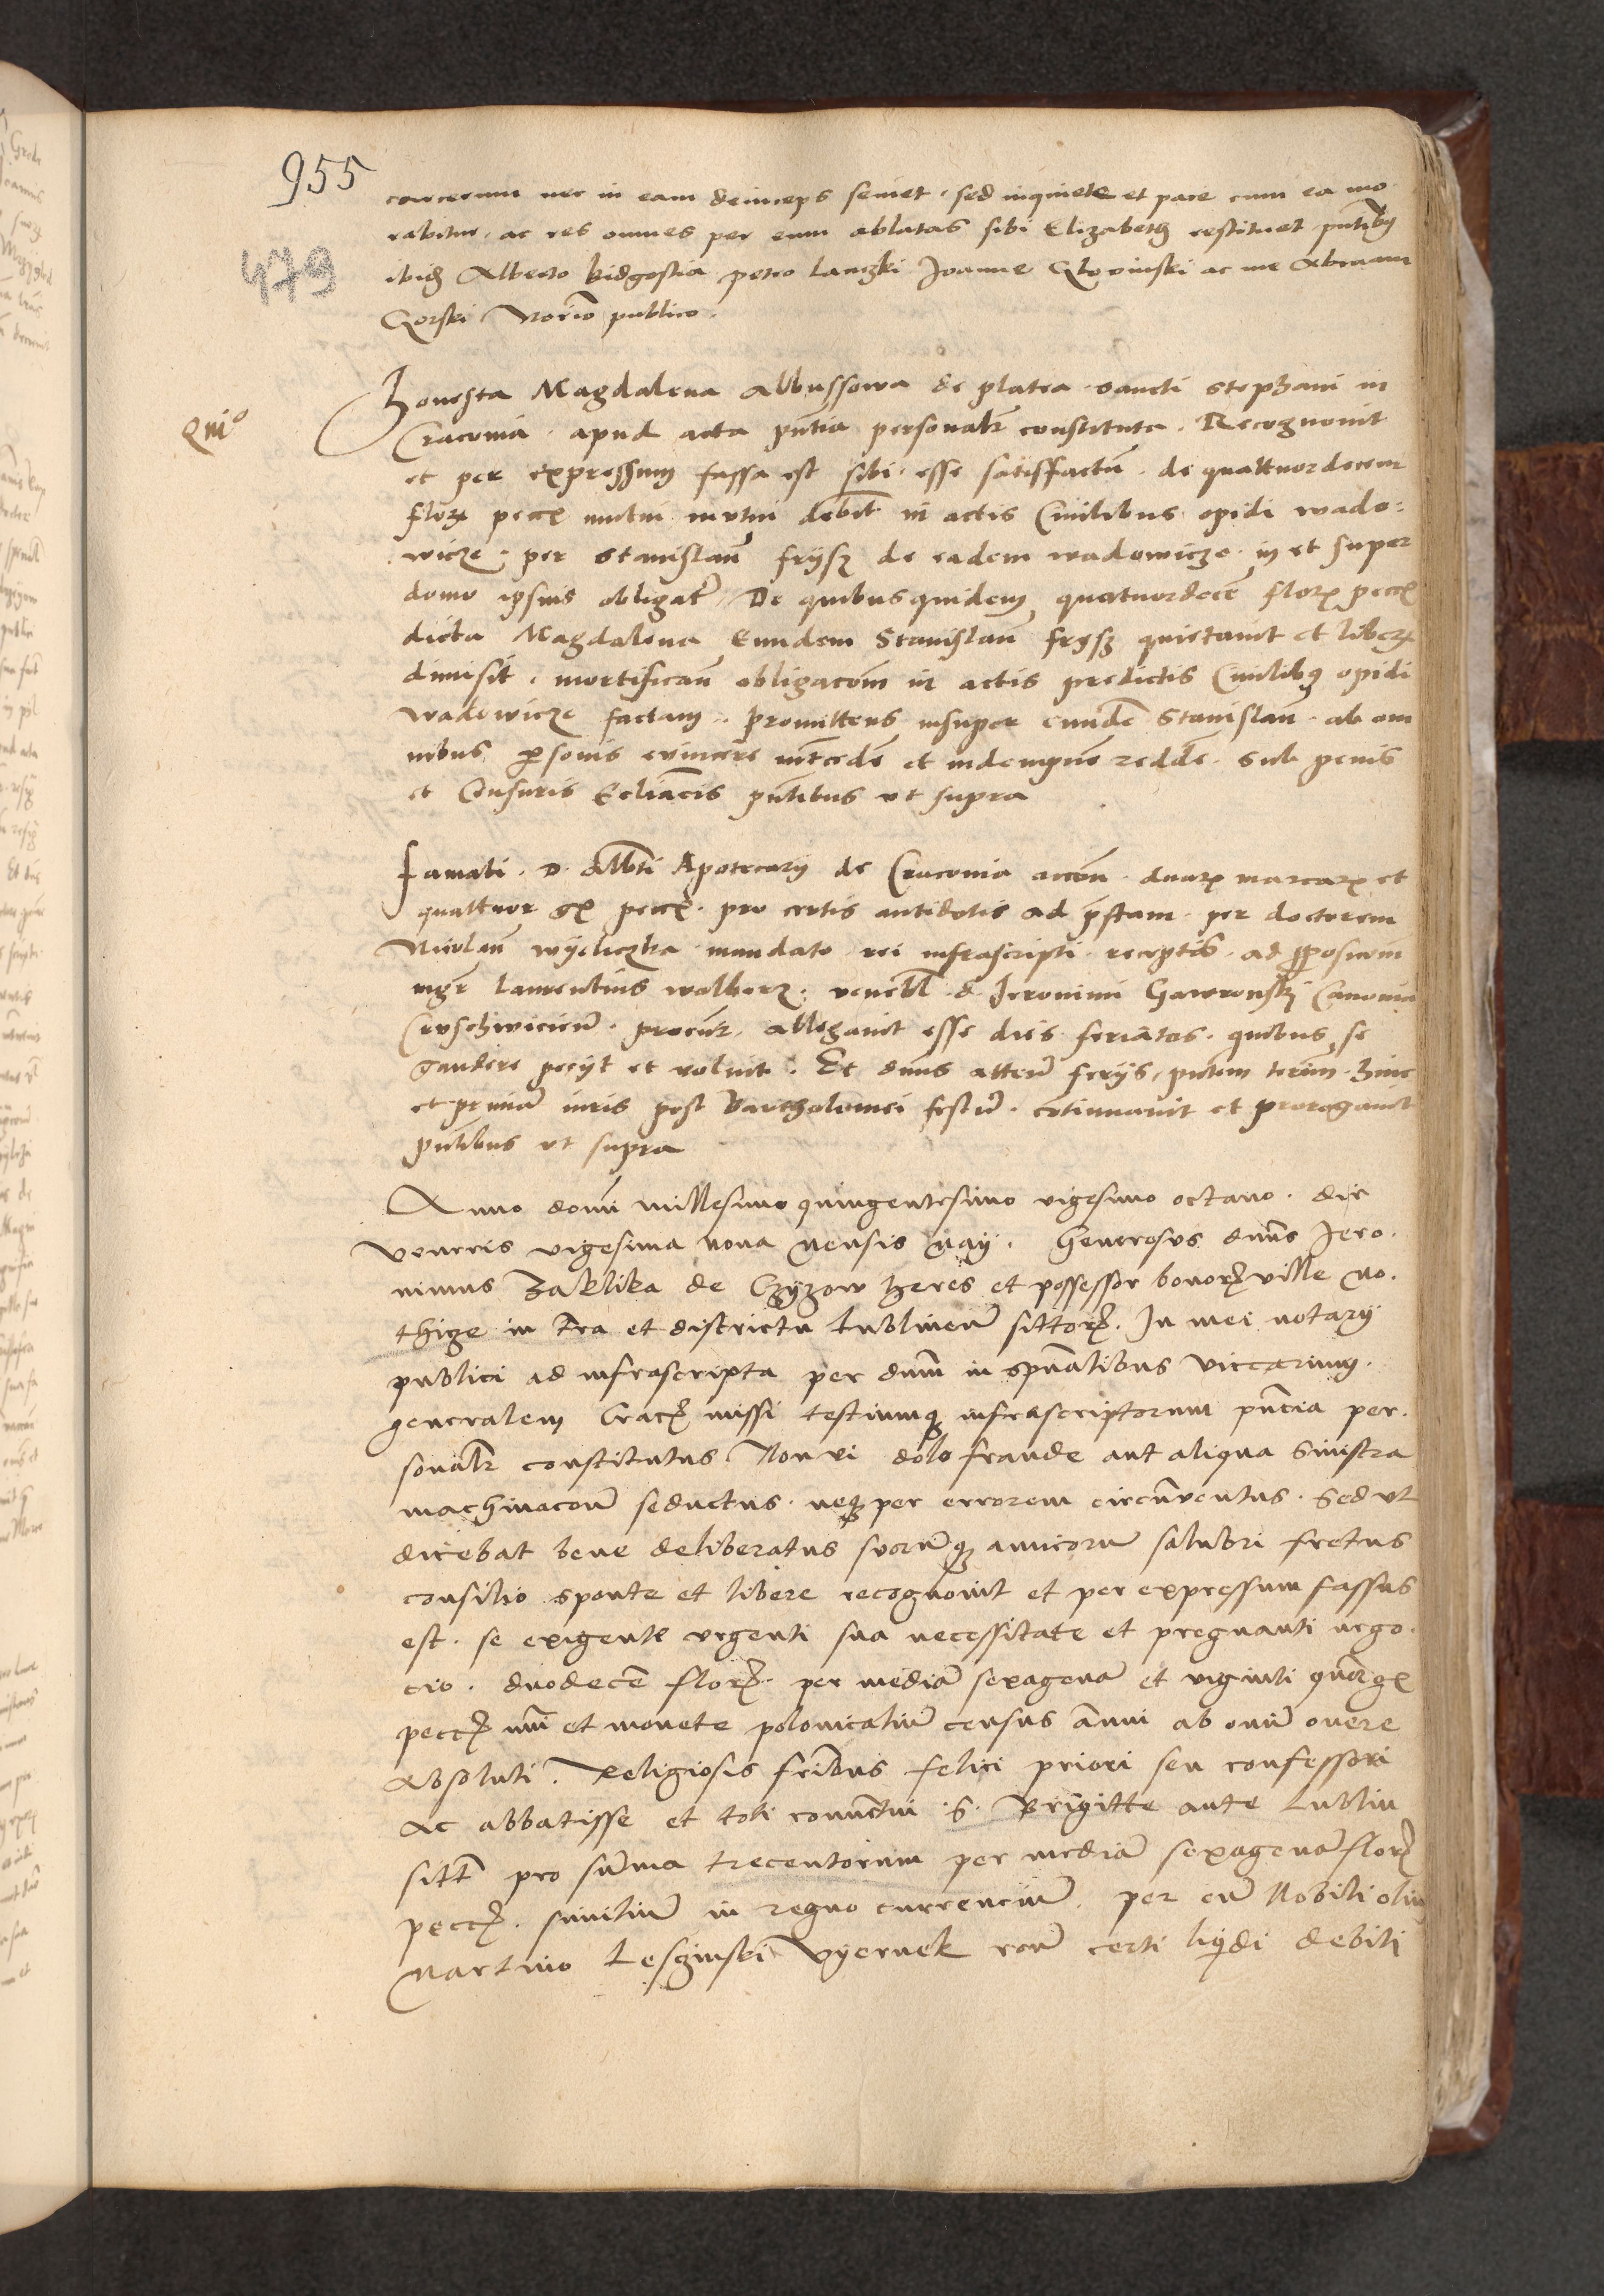 955
479
carcerum nec in eam deinceps seviet · sed in quiete et pace cum ea mo
rabitur, ac res omnes per eum ablatas sibi Elizabeth restituet pntibus
ibidem Alberto bidgostia petro Lanczki Joanne Glovinski ac me Abraam
Gorski Notario publico.
Qui°
Honesta Magdalena Albussowa de platea sancti Stephani in
Cracovia · apud acta pntia personalr constituta · Recognovit
et per expressum fassa est sibi esse satisfactum · de quattuordecem
florz pecc mutui debit in actis Civilibus opidi wado:
wicze · per Stanislaum frijsz de eadem wadowicze · in et super
domo ipsius obligatr De quibusquidem quatuordecem florz pecc
dicta Magdalena Eundem Stanislaum frysz quietavit et liberz
dimisit · mortificans obligacom in actis predictis Civilibus opidi
wadowicze factam · promittens insuper eundem Stanislaum · ab om
nibus personis evincere intcedere et indempnem reddere · sub penis
et Censuris Ecliacis pntibus ut supra
Famati · D · Alberti Apotecarij de Cracovia accom · duarz marcarz et
quattuor gr pecc · pro certis antidotis ad pstam · per doctorem
Nicolaum wijeliczka mandato rei infrascripti receptis · ad proposicom
mgr Laurentius walberz · venebl d Jeronimi Gawronski Canonici
Cruschwicien · procur · allegavit esse dies feriatos · quibus se
gaudere petijt et voluit · Et dnus attens ferijs, pntem termin hinc
et primam iuris post Bartholomei festum · continuavit et prorogavit
pntibus ut supra
Anno domini millesimo quingentesimo vigesimo octavo · die
veneris vigesima nona mensis maij · Generosus dnus Jero·
nimus Zaklika de Czyzow heres et possessor bonorz ville wo·
thize in terra et districtu Lublinen sittorz. In mei notarij
publici ad infrascripta per dnum in spualibus viccarium
generalem Crac missi testiumque infrascriptorum pncia per·
sonalr constitutus Non vi dolo fraude aut aliqua sinistra
machinacone seductus · neque per errorem circumventus · Sed ut
dicebat bene deliberatus suorumque amicorum salubri fretus
consilio sponte et libere recognovit et per expressum fassus
est · se exigente urgenti sua necessitate et pregnanti nego·
cio · duodecem florz · per mediam sexagenam et viginti quor gr
pecc num et monete polonicalium census annui ab omni onere
absoluti. Religiosis fribus felici priori seu confessori
ac abbatisse et toti conventui S. Brigitte ante Lublin
sitt pro summa trecentorum per mediam sexagenam florz
pecc · similium in regno currencium per eum Nobili olim
Martino Lesginski Vyernek rone certi liquidi debiti